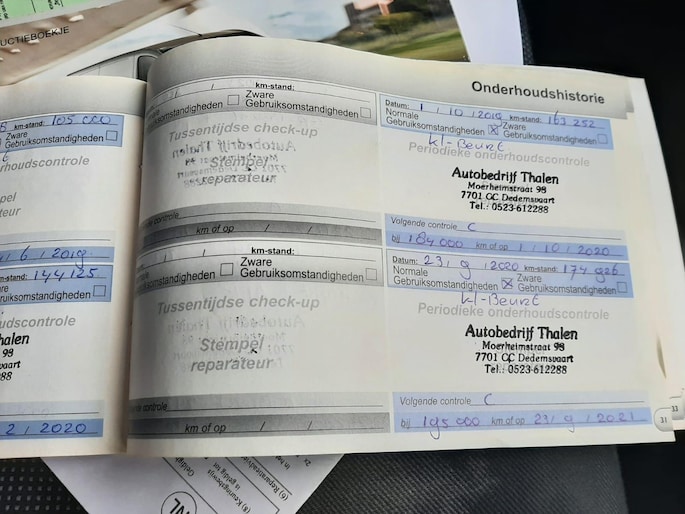 UCTIEBOEKJE
km-stand: 105 000
Zware
Gebruiksomstandigheden
rhoudscontrole
pel
teur
6 / 2019
km-stand: 144125
Zware
Gebruiksomstandigheden
udscontrole
Thalen
98
vaart
88
2 / 2020
km-stand:
Zware
Gebruiksomstandigheden
Tussentijdse check-up
Stempel
reparateur
controle
km of op / /
km-stand:
Zware
Gebruiksomstandigheden
Tussentijdse check-up
Stempel
reparateur
controle
km of op / /
Onderhoudshistorie
Datum: 1 / 10 / 2019 km-stand: 163 252
Normale
Gebruiksomstandigheden
Zware
Gebruiksomstandigheden
kl-Beurt
Periodieke onderhoudscontrole
Autobedrijf Thalen
Moerheimstraat 98
7701 CC Dedemsvaart
Tel.: 0523-612288
Volgende controle C
bij 184 000 km of op 1 / 10 / 2020
Datum: 23 / 9 / 2020 km-stand: 174 926
Normale
Gebruiksomstandigheden
Zware
Gebruiksomstandigheden
kl-Beurt
Periodieke onderhoudscontrole
Autobedrijf Thalen
Moerheimstraat 98
7701 CC Dedemsvaart
Tel.: 0523-612288
Volgende controle C
bij 195 000 km of op 23 / 9 / 2021
31
33
NL